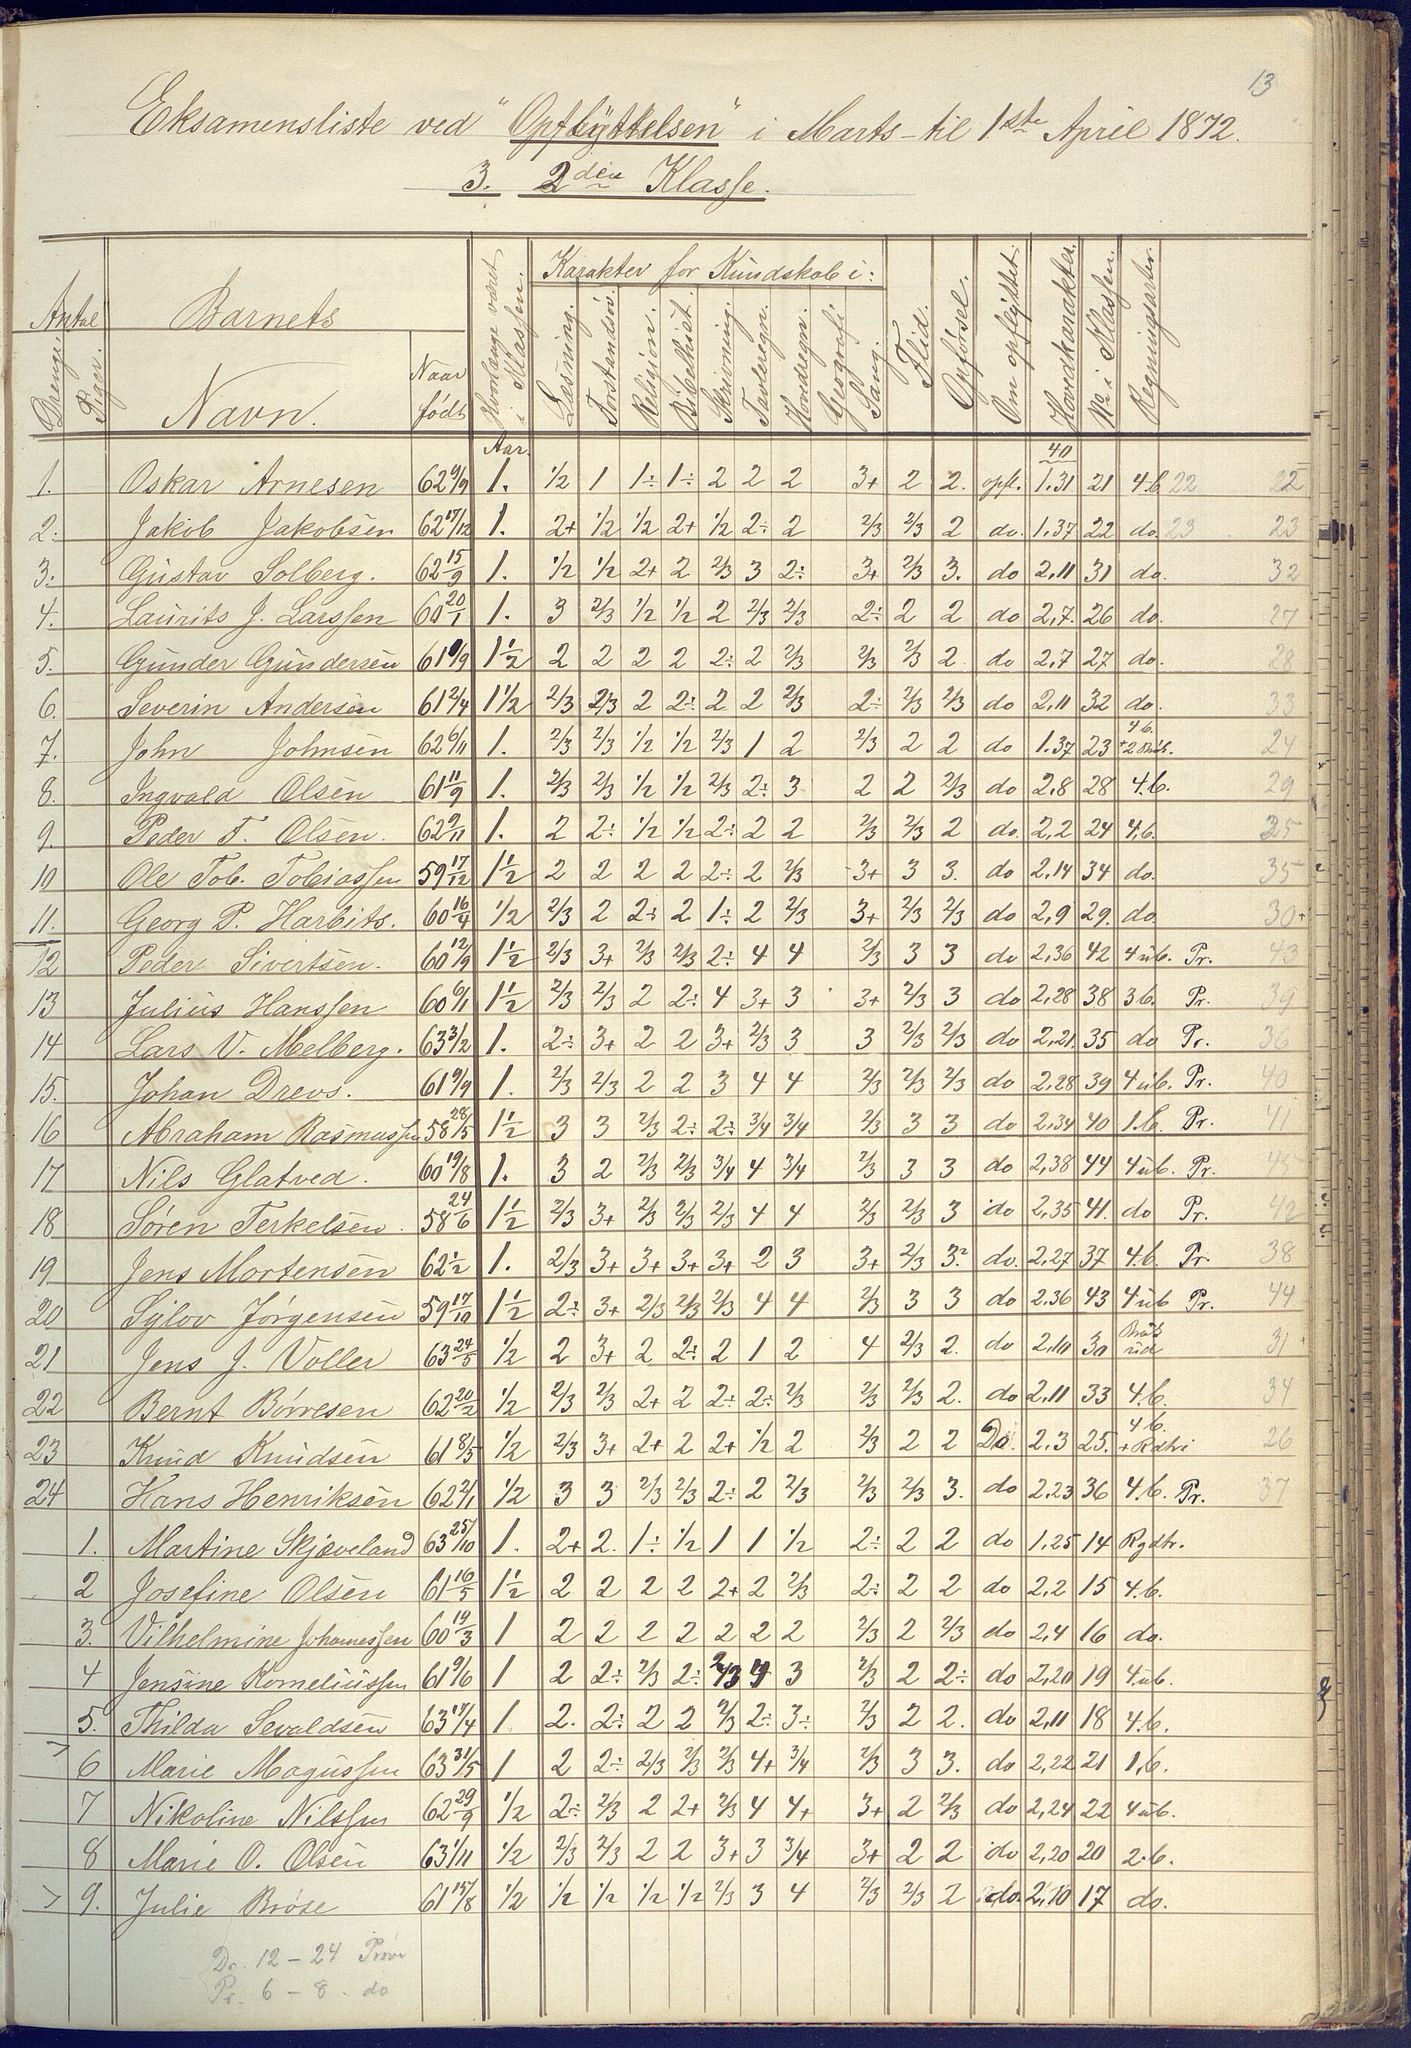 13
Eksamensliste ved "Opflyttelsen" i Marts - til 1ste April 1872.
3. 2den Klasse.
Antal Barnets Navn. Naar født Hvorlænge været i Klassen. Karakter for Kundskab i: Flid. Opførsel. Om opflyttet Hovedkarakter. No i Klassen. Regningsarter.
Drenge. Piger. Læsning. Forstandsöv. Religion. Bibelhist. Skrivning. Tavleregn. Hovedregn. Geografi Sang.
Aar. 40
1. Oskar Arnesen 62 9/9 1. 1/2 1 1÷ 1÷ 2 2 2 3+ 2 2. opfl. 1.31 21 4.b. 22 22
2. Jakob Jakobsen 62 17/12 1. 2+ 1/2 1/2 2+ 1/2 2÷ 2 2/3 2/3 2 do. 1.37 22 do. 23 23
3. Gustav Solberg. 62 15/9 1. 1/2 1/2 2+ 2 2/3 3 2÷ 3+ 2/3 3. do 2,11 31 do. 32
4. Laurits J. Larssen 60 20/1 1. 3 2/3 1/2 1/2 2 2/3 2/3 2÷ 2 2 do 2,7. 26 do. 27
5. Gunder Gundersen 61 /9 1 1/2 2 2 2 2 2÷ 2 2/3 2/3 2/3 2 do 2,7 27 do. 28
6. Severin Andersen 61 2/4 1 1/2 2/3 2/3 2 2÷ 2 2 2/3 2÷ 2/3 2/3 do 2,11 32 do. 33
7. John Johnsen 62 6/11 1. 2/3 2/3 1/2 1/2 2/3 1 2 2/3 2 2 do 1.37 23 4b. 24
8. Ingvald Olsen 61 11/9 1. 2/3 2/3 1/2 1/2 2/3 2÷ 3 2 2 2/3 do 2,8 28 4.b. 29
9. Peder T. Olsen. 62 9/11 1. 2 2÷ 1/2 1/2 2÷ 2 2 2/3 2/3 2 do. 2,2 24 4,b. 25
10 Ole Tob. Tobiassen 59 17/12 1 1/2 2 2 2 2 2÷ 2 2/3 3+ 3 3. do 2,14 34 do. 35
11. Georg P. Harbits. 60 16/4 1/2 2/3 2 2÷ 2 1÷ 2 2/3 3+ 2/3 2/3 do 2,9 29. do. 30+
12 Peder Sivertsen. 60 12/9 1 1/2 2/3 3+ 2/3 2/3 2÷ 4 4 2/3 3 3 do 2,36 42 4ub. Pr. 43
13 Julius Hanssen 60 6/1 1 1/2 2/3 2/3 2 2÷ 4 3+ 3 3+ 2/3 3 do 2,28 38 3b. Pr. 39
14 Lars V. Melberg. 63 3/2 1. 2÷ 3+ 2 2 3+ 2/3 3 3 2/3 2/3 do 2,21. 35 do Pr. 36
15. Johan Drevs. 61 9/9 1. 2/3 2/3 2 2 3 4 4 2/3 2/3 2/3 do 2,28 39 4ub. Pr. 40
16 Abraham Rasmussen 58 28/5 1 1/2 3 3 2/3 2÷ 2÷ 3/4 3/4 2/3 3 3 do 2,34 40 1.b. Pr. 41
17 Nils Glatved. 60 19/8 1. 3 2 2/3 2/3 3/4 4 3/4 2/3 3 3 do 2,38 44 4ub. Pr. 45
18 Søren Terkelsen. 58 24/6 1 1/2 2/3 3+ 2/3 2/3 2/3 4 4 2/3 2/3 3 do 2.35 41. do Pr. 42
19 Jens Mortensen 62 1/2 1. 2/3 3+ 3+ 3+ 3+ 2 3 3+ 2/3 3? do. 2,27 37 4.b. Pr. 38
20 Sylov Jørgensen 59 17/10 1 1/2 2÷ 3+ 2/3 2/3 2/3 4 4 2/3 3 3 do 2.36 43 4ub Pr. 44
21 Jens J. Voller 63 24/5 1/2 2 3+ 2 2÷ 2 1 2 4 2/3 2. do 2,10 30 31+
22 Bernt Börresen 62 20/2 1/2 2/3 2/3 2+ 2 2÷ 2÷ 2/3 2/3 2/3 2. do 2,11 33 4.b. 34
23 Knud Knudsen 61 8/5 1/2 2/3 3+ 2+ 2 2+ 1/2 2 2/3 2 2 Do. 2.3 25. 4b. +Rdtri 26
24 Hans Henriksen 62 2/1 1/2 3 3 2/3 2/3 2÷ 2 2/3 2/3 2/3 3. do 2.23 36 4.b. Pr. 37
1. Martine Skjæveland 63 25/10 1. 2+ 2. 1÷ 1/2 1 1 1/2 2÷ 2 2 do 1.25 14 Rgdtr.
2 Josefine Olsen 61 16/5 1 1/2 2 2 2 2 2+ 2 2/3 2÷ 2 2 do 2.2 15 4.b.
3. Vilhelmine Johannessen 60 19/3 1 2 2 2 2 2 2 2 2/3 2 2/3 do 2,4 16 do.
4 Jensine Korneliussen 61 9/6 1 2 2÷ 2/3 2÷ 2/3 4 3 2/3 2 2÷ do 2,20 19 4ub.
5. Thilda Sevaldsen 63 17/4 1 2. 2÷ 2 2 2/3 2÷ 3÷ 2/3 2 2. do 2,11 18 4.b.
6 Marie Magnussen 63 31/5 1 2 2÷ 2/3 2/3 2/3 4+ 3/4 2/3 3 3. do 2,22 21 1,b.
7 Nikoline Nilssen 62 29/9 1/2 2÷ 2/3 2 2+ 2/3 4 4+ 3+ 2 2/3 do 2,24 22 4ub.
8 Marie O. Olsen 63 1/11 1/2 2/3 2/3 2 2 3+ 3 3/4 3+ 2 2 do 2,20 20 2.b.
9. Julie Brøse 61 15/8 1/2 1/2 1/2 1/2 1/2 2/3 3 4 2/3 2/3 2 do. 2,10 17 do.
Dr. 12 - 24 Prøve
Pi. 6 - 8 - do